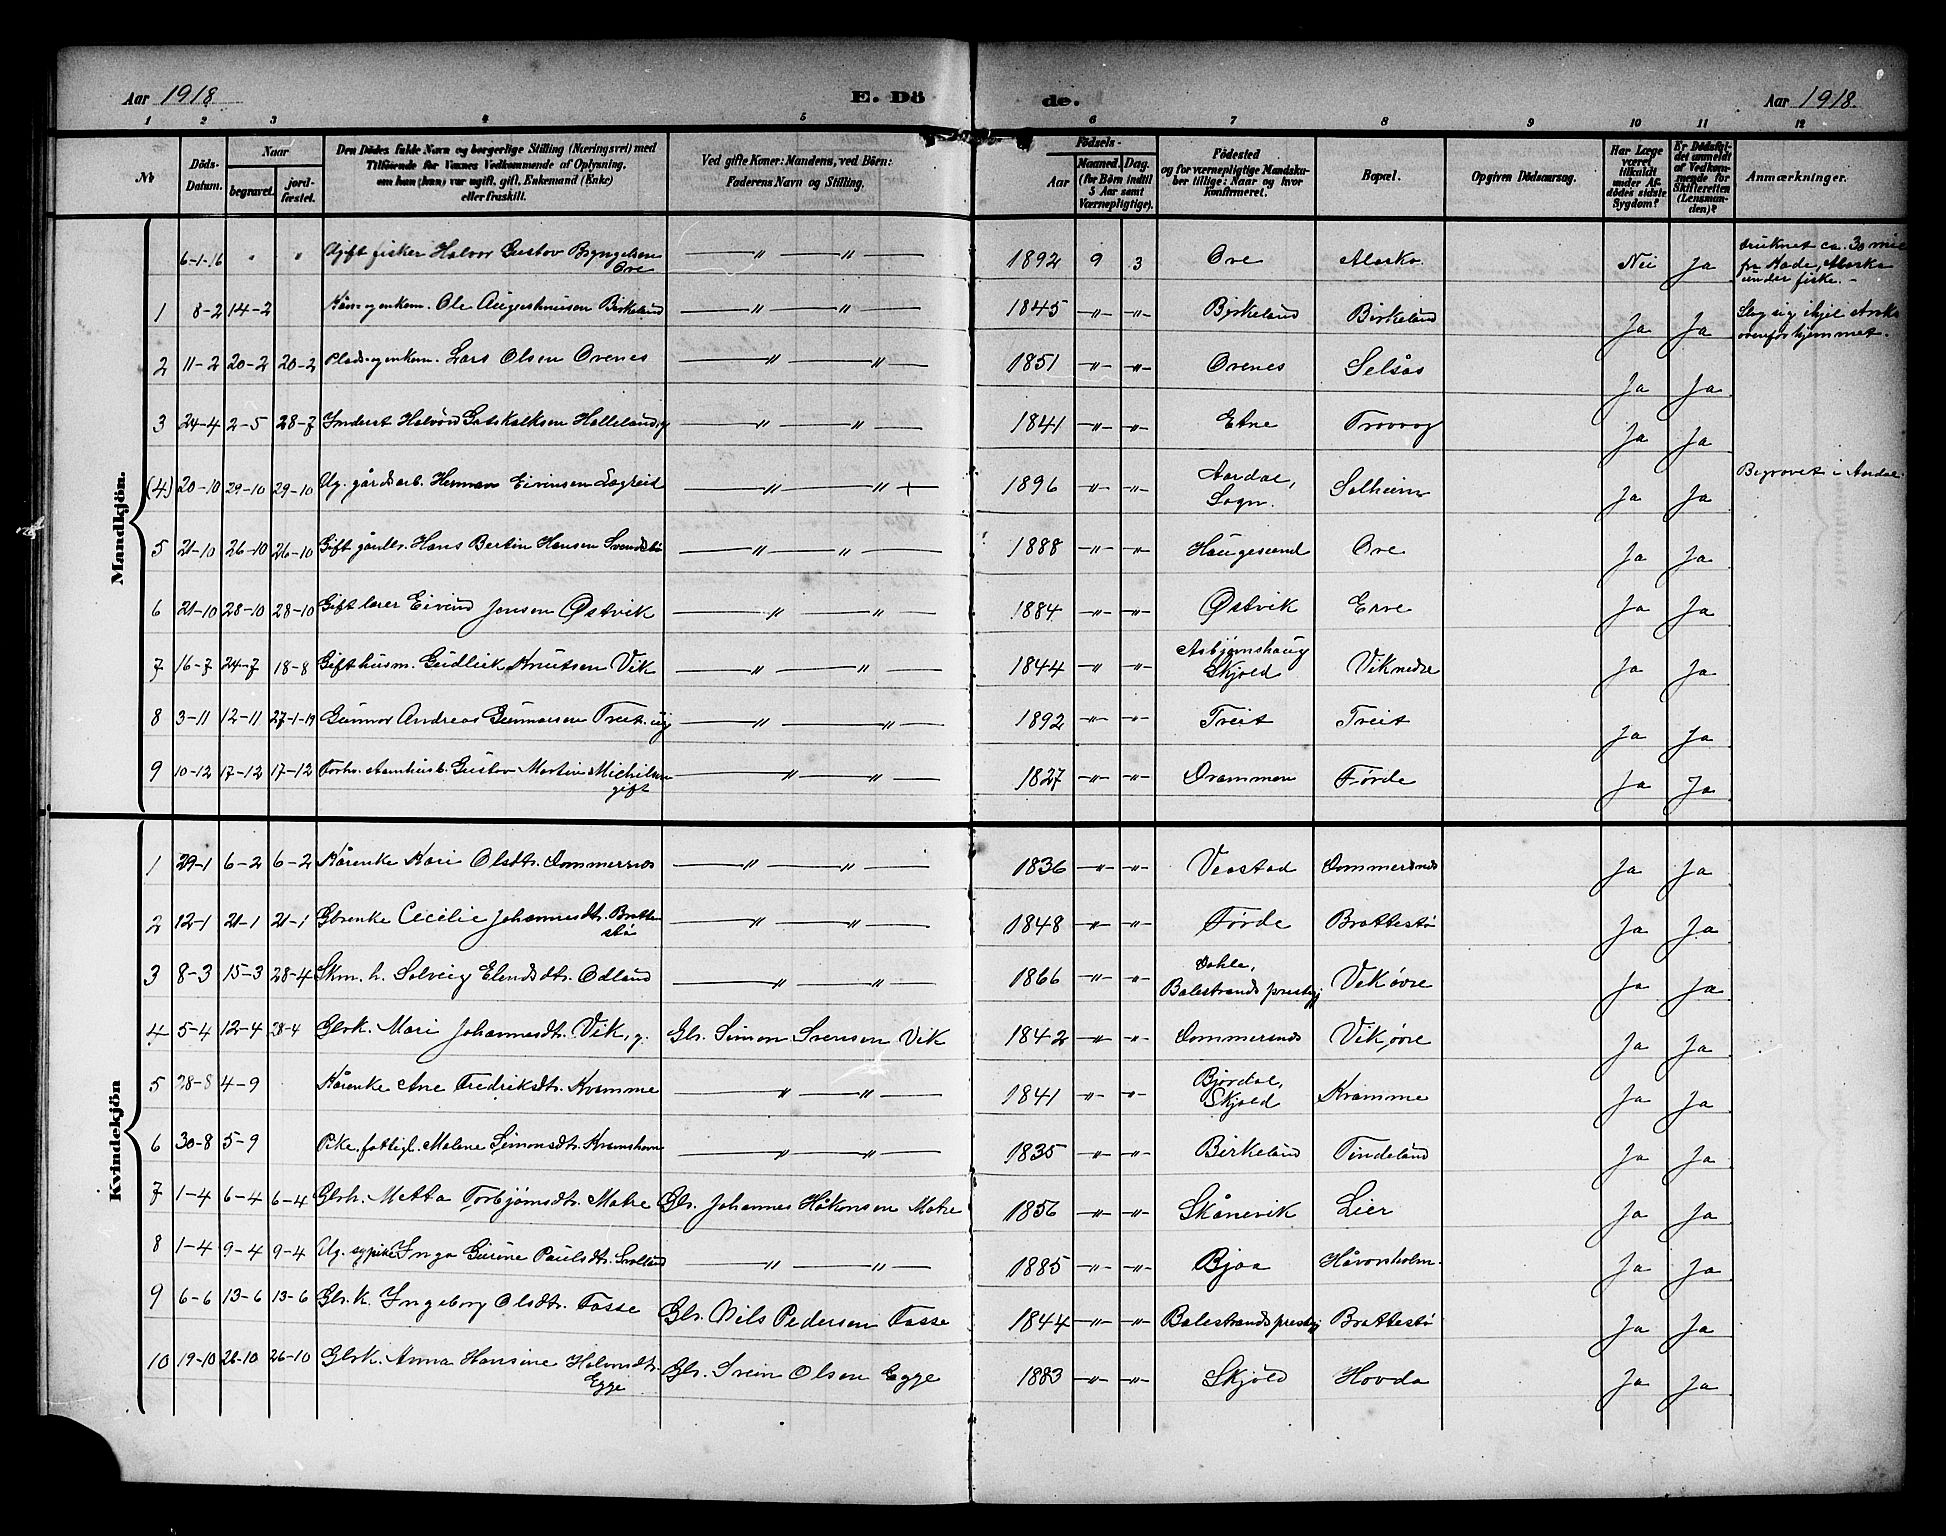 Aar 1918. E. Dö de. Aar 1918.
1 2 3 4 5 6 7 8 9 10 11 12
No Döds-Datum. Naar begravet. jordfæstet. Den Dödes fulde Navn og borgerlige Stilling (Næringsvei) med Tilföiende for Voxnes Vedkommende af Oplysning, om han (hun) var ugift, gift, Enkemand (Enke) eller fraskilt. Ved gifte Koner: Mandens, ved Börn: Faderens Navn og Stilling. Födsels- Aar Maaned. Dag. (for Börn indtil 5 Aar samt Værnepligtige). Födested og for værnepligtige Mandskaber tillige: Naar og hvor Konfirmeret. Bopæl. Opgiven Dödsaarsag. Har Læge været tilkaldt under Afdödes sidste Sygdom? Er Dödsfaldet anmeldt af Vedkommende for Skifteretten (Lensmanden)? Anmærkninger.
Mandkjön.
6-1-16 " " Ugift fisker Halvor Gustov Byngelsen Ore — " — " — 1892 9 3 Ore Alaska Nei Ja druknet ca. 30 mil fra Kade, Alaska under fiske. -
1 8-2 14-2 Kårmyrenkem. Ole Augestinusen Birkeland — " — " — 1845 -"- -"- Birkeland Birkeland Ja Ja Slog sig ihjel ovenfor hjemmet.
2 11-2 20-2 20-2 Plads-og enkem. Lars Olsen Ovenes — " — " — 1851 -"- -"- Ovenes Selsås Ja Ja
3 24-4 2-5 28-7 Inderst Halvord Gotskalksen Hallelund, g — " — " — 1841 -"- -"- Etne Trovåg Ja Ja
(4) 20-10 29-10 29-10 Ug. gårdsarb. Herman Eivinsen Lagreid — " — " + 1896 -"- -"- Aardal, Sogn. Solheim Ja Ja Begravet i Aardal
5 21-10 26-10 26-10 Gift gårdbr. Hans Bertin Hansen Svendsbø — " — " — 1888 -"- -"- Haugesund Ore Ja Ja
6 21-10 28-10 28-10 Gift lærer Eivind Jensen Østvik — " — " — 1884 -"- -"- Østvik Erve Ja Ja
7 16-7 24-7 18-8 Gift husm. Gudleik Knutsen Vik — " — " — 1844 -"- -"- Asbjørnshaug Skjold Vik nedre Ja Ja
8 3-11 12-11 27-1-19 Gunnar Andreas Gunnarsen Treit. ug — " — " — 1892 -"- -"- Treit Treit Ja Ja
9 10-12 17-12 17-12 Gustov Martin Michelsen gift — " — " — 1827 -"- -"- Drammen Førde Ja Ja
Kvindekjön
1 29-1 6-2 6-2 Kårenke Kari Olsdtr. Dommersnes — " — " — 1836 -"- -"- Veastad Dommersnes Ja Ja
2 12-1 21-1 21-1 Gbrenke Cecilie Johannesdtr. Brattestø — " — " — 1848 -"- -"- Førde Brattestø Ja Ja
3 8-3 15-3 28-4 Skm. h. Solveig Elendsdtr. Odland — " — " — 1866 -"- -"- Dahle, Balestrands prestgj Vik øvre Ja Ja
4 5-4 12-4 28-4 Gbrk. Mari Johannesdtr. Vik, g. Gbr. Simon Svensen Vik 1842 -"- -"- Dommersnes Vik øvre Ja Ja
5 28-8 4-9 Kårenke Ane Fredriksdtr. Kramme — " — " — 1841 -"- -"- Bjordal, Skjold Kramme Ja Ja
6 30-8 5-9 Pike, fattigl. Malene Simonsdtr. Kramshavn — " — " — 1835 -"- -"- Birkeland Tindeland Ja Ja
7 1-4 6-4 6-4 Gbrk. Metta Torbjørnsdtr. Matre Gbr. Johannes Håkonsen Matre 1856 -"- -"- Skånevik Lier Ja Ja
8 1-4 9-4 9-4 Ug. sypike Inga Gurine Paulsdtr. Svolland — " — " — 1885 -"- -"- Bjoa Håvorsholm. Ja Ja
9 6-6 13-6 13-6 Gbr. k. Ingeborg Olsdtr. Fosse Gbr. Nils Pedersen Fosse 1844 -"- -"- Balestrands prestgj Brattestø Ja Ja
10 19-10 26-10 26-10 Gbrk. Anna Hansine Halvorsdtr. Egge Gbr. Svein Olsen Egge 1883 -"- -"- Skjold Hovda Ja Ja